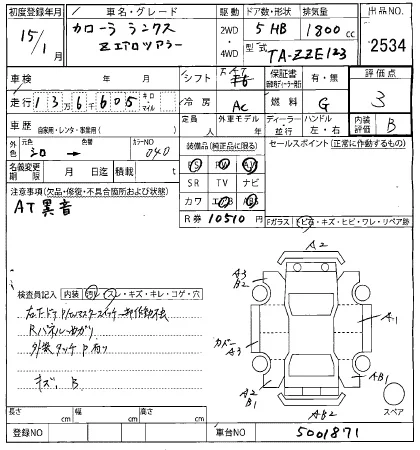 初度登録年月 車名・グレード 駆動 ドア数・形状 排気量 出品NO.
15/1月 カローラ ランクス 2WD 5 HB 1800cc 2534
ZエアロツアラーV 4WD 型式 TA-ZZE123
車検 年 月 シフト 保証書 有・無 評価点
走行 136605 キロ・マイル 冷房 AC 燃料 G 3
車歴 自家用・レンタ・事業用( ) 定員 人 外車モデル 年 ディーラー・並行 ハンドル 左・右 内装評価 B
外色 元色 シロ → 色替 カラーNO 040 装備品(純正品に限る) セールスポイント(正常に作動するもの)
PS PW AW
名義変更期限 月 日迄 積載 t SR TV ナビ
注意事項(欠品・修復・不具合箇所および状態) カワ AB
AT異音 R券 10510円 Fガラス トビ石・キズ・ヒビ・ワレ・リペア跡
A2
検査員記入 内装 汚レ・スレ・キズ・キレ・コゲ・穴 A3 B2
A1
Rパネルめがり カドー A3
外装タッチP有り A2 B1 AB1
キズ、B AB2 スペア
長さ cm 幅 cm 高さ cm
登録NO 車台NO 5001871